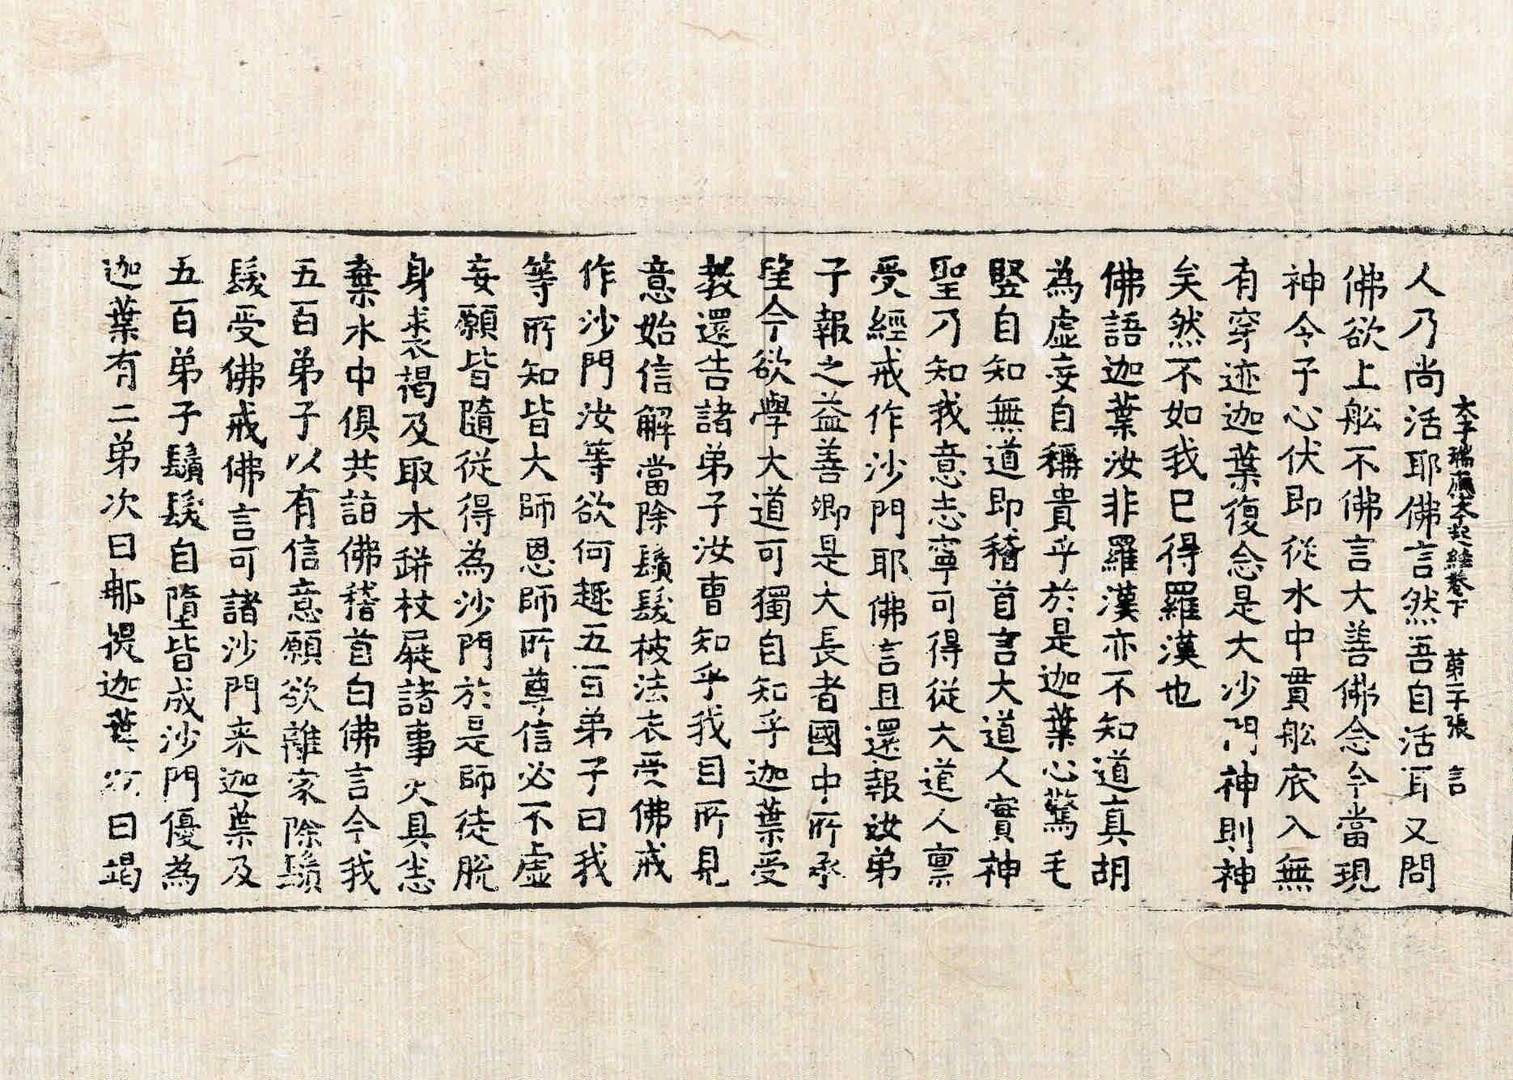 太子瑞應本起經卷下　第二十張　言
人乃尚活耶佛言然吾自活耳又問
佛欲上舩不佛言大善佛念今當現
神令子心伏即從水中貫舩底入無
有穿迹迦葉復念是大沙門神則神
矣然不如我已得羅漢也
佛語迦葉汝非羅漢亦不知道真胡
為虛妄自稱貴乎於是迦葉心驚毛
竪自知無道即稽首言大道人實神
聖乃知我意志寧可得從大道人稟
受經戒作沙門耶佛言且還報汝弟
子報之益善卿是大長者國中所承
望今欲學大道可獨自知乎迦葉受
教還告諸弟子汝曹知乎我目所見
意始信解當除鬚髮被法衣受佛戒
作沙門汝等欲何趣五百弟子曰我
等所知皆大師恩師所尊信必不虛
妄願皆隨從得為沙門於是師徒脫
身求衣褐及取水缾杖屣諸事火具悉
棄水中俱共詣佛稽首白佛言今我
五百弟子以有信意願欲離家除鬚
髮受佛戒佛言可諸沙門来迦葉及
五百弟子鬚髮自墮皆成沙門優為
迦葉有二弟次曰那提迦葉次曰竭